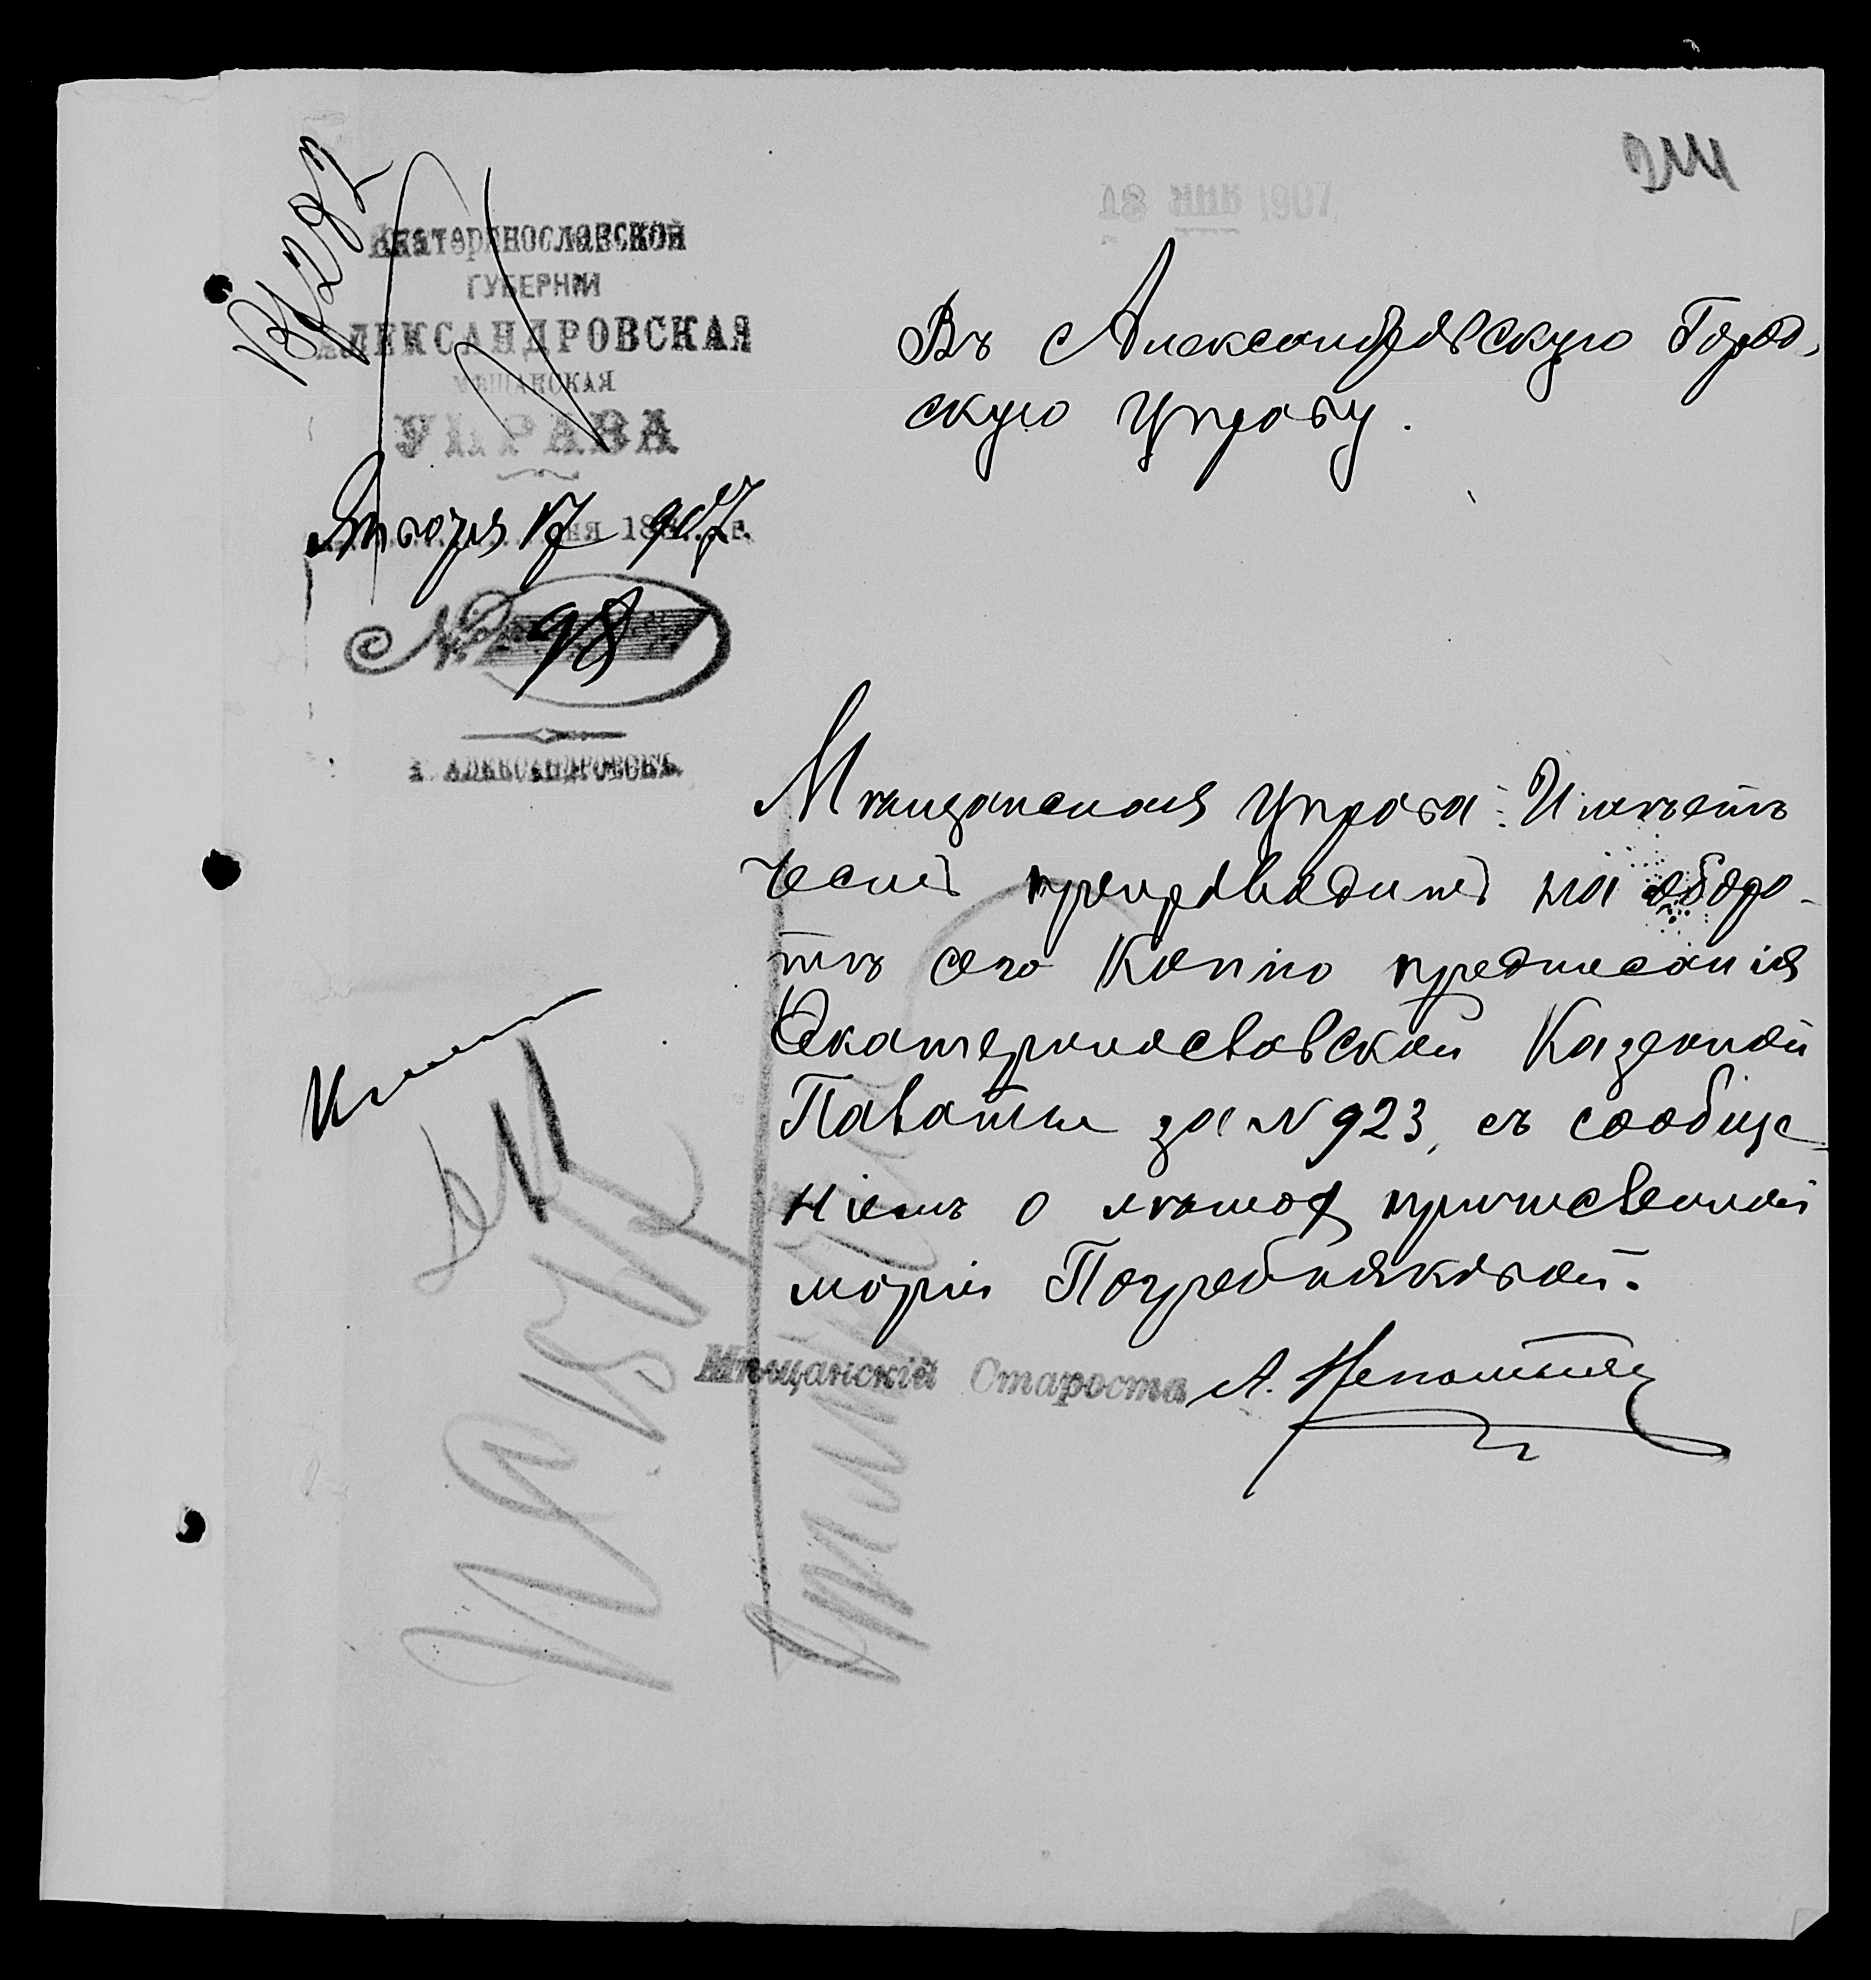 244
18 ЯНВ 1907
Вх 292
Екатеринославской
ГУБЕРНІИ
АЛЕКСАНДРОВСКАЯ
МѢЩАНСКАЯ
УПРАВА
Января 17 дня 1907 г.
№ 98
г. АЛЕКСАНДРОВСКЪ.
Въ Александровскую Город-
скую Управу.
Мѣщанская Управа: Имѣетъ
честь препроводить на оборо-
тѣ сего Копію предписанія
Екатеринославской Казенной
Палаты за № 923, съ сообще-
ніемъ о причисленной
маріи Погребняковой.
Мѣщанскій Староста А.